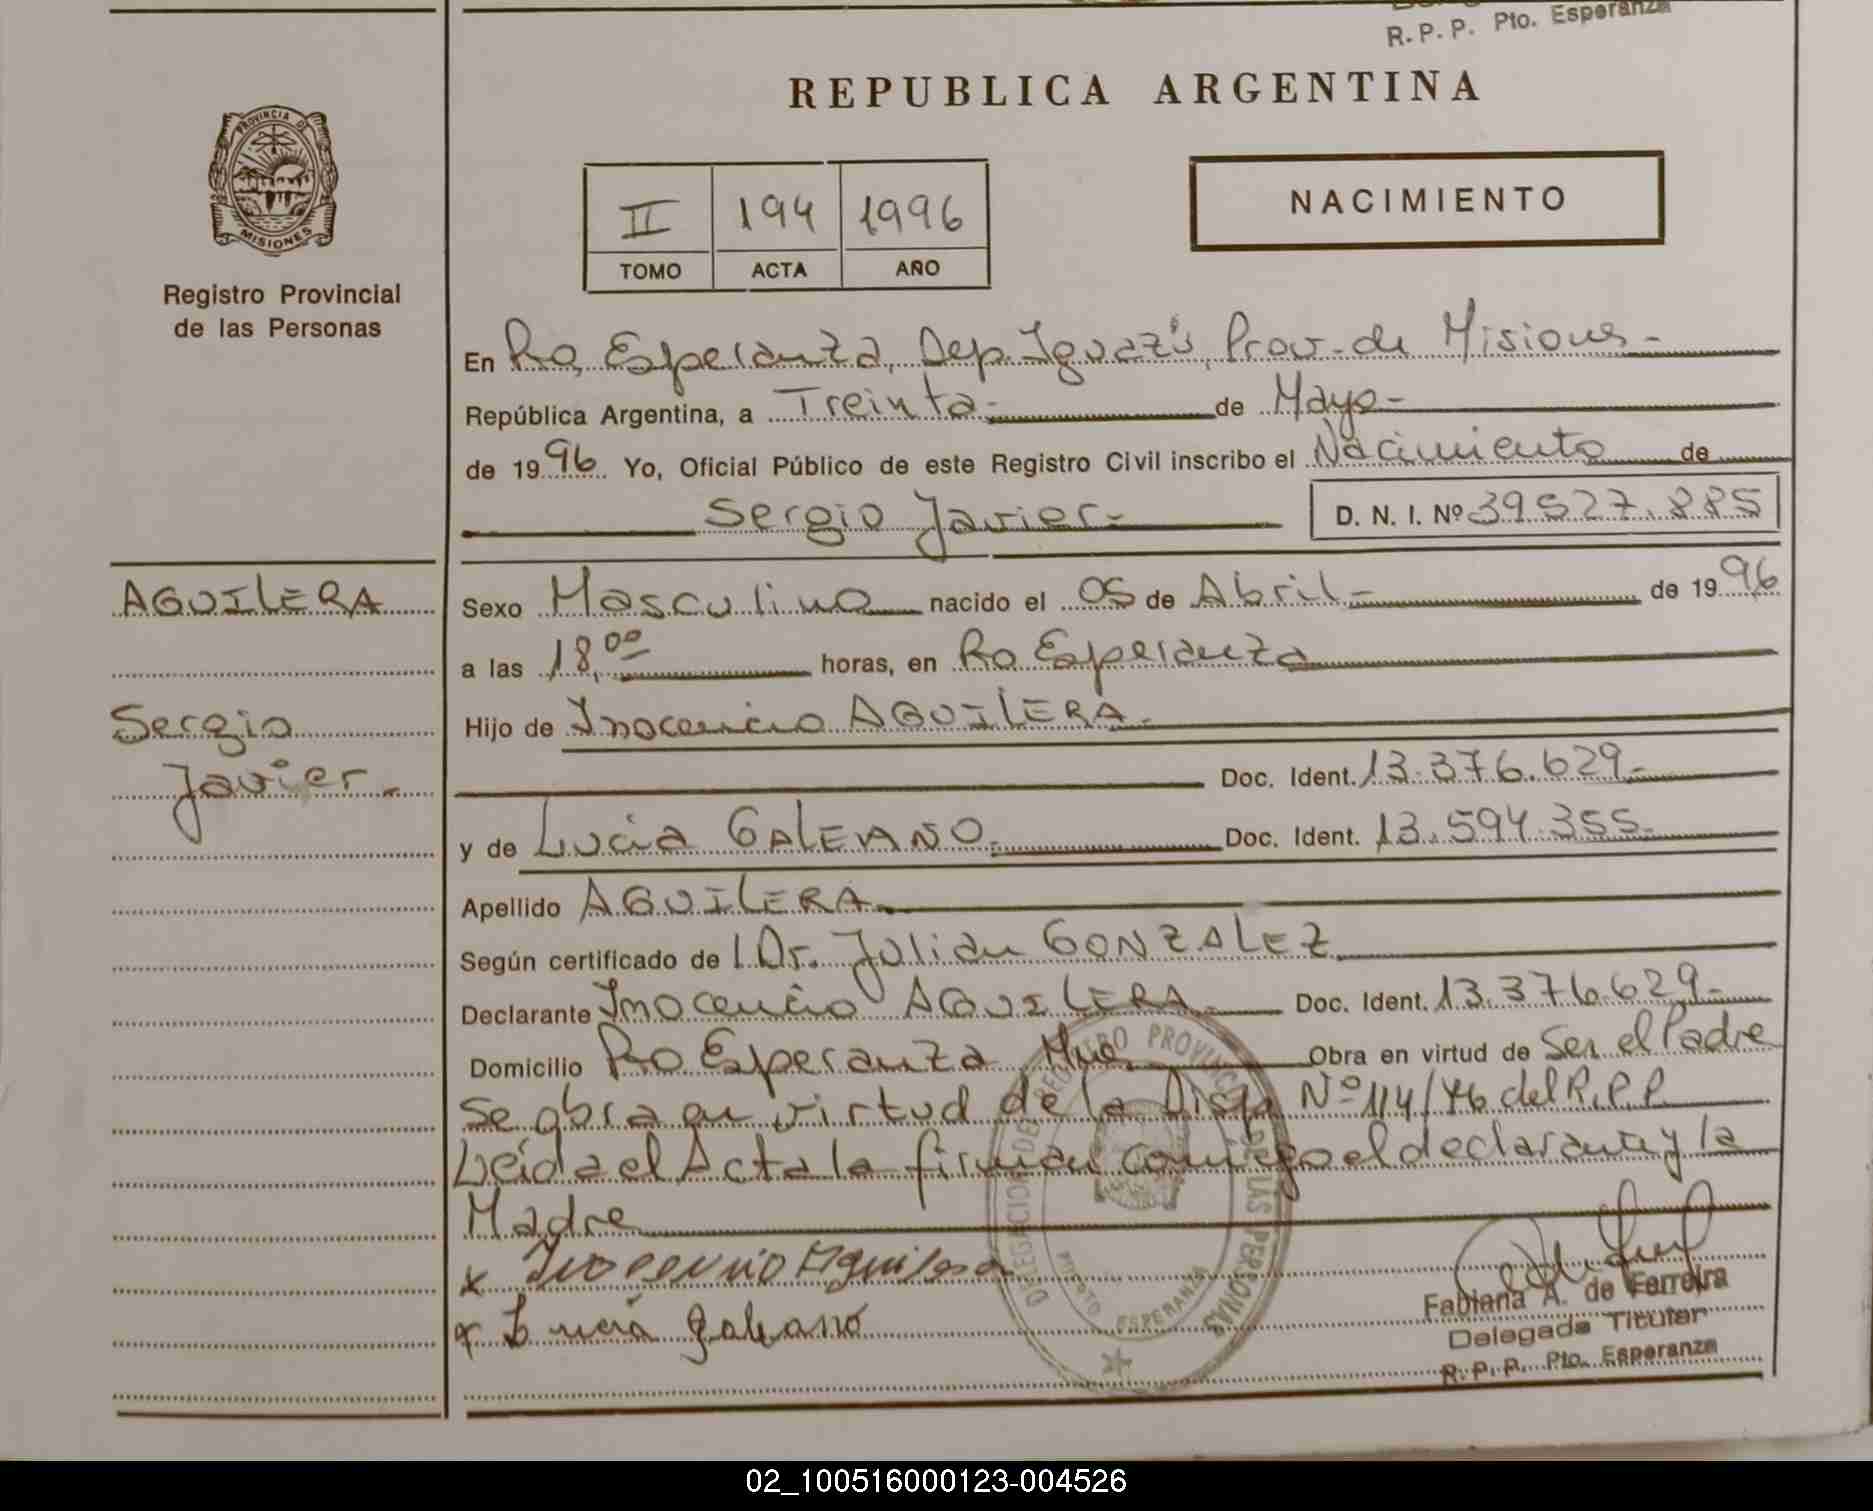 R. P. P. Pto. Esperanza
REPUBLICA ARGENTINA
PROVINCIA DE
MISIONES
Registro Provincial
de las Personas
II 194 1996
TOMO ACTA AÑO
NACIMIENTO
En Pto Esperanza, Dep. Iguazú, Prov. de Misiones-
República Argentina, a Treinta- de Mayo-
de 1996 Yo, Oficial Público de este Registro Civil inscribo el Nacimiento de
Sergio Javier- D. N. I. Nº 39527.885
AGUILERA
Sergio
Javier.-
Sexo Masculino nacido el 05 de Abril- de 1996
a las 18,00 horas, en Pto Esperanza
Hijo de Inocencio AGUILERA.-
Doc. Ident. 13.376.629-
y de Lucia GALEANO.- Doc. Ident. 13.594.355-
Apellido AGUILERA.-
Según certificado de l Dr. Julian GONZALEZ
Declarante Inocencio AGUILERA- Doc. Ident. 13.376.629-
Domicilio Pto Esperanza Mnes Obra en virtud de Ser el Padre
Se obra en virtud de la Disp. Nº 114/76 del R.P.P.
Leida el Acta la firman conmigo el declarante y la
Madre
x Inocencio Aguilera
x Lucia Galeano
DELEGACION DEL REGISTRO PROVINCIAL DE LAS PERSONAS
PUERTO ESPERANZA
Fabiana A. de Ferreira
Delegada Titular
R. P. P. Pto. Esperanza
02_100516000123-004526